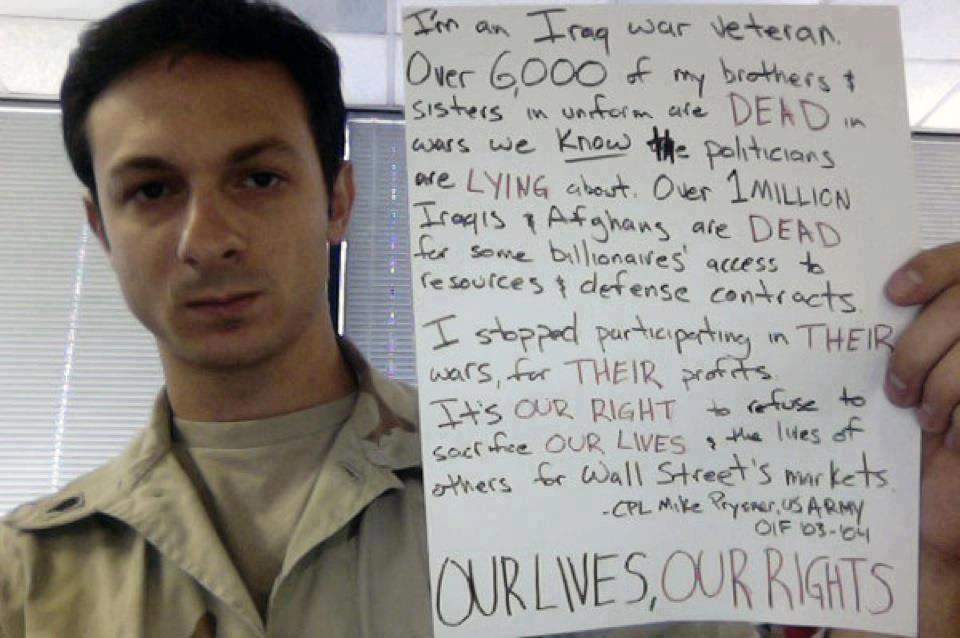 I'm an Iraq war veteran.
Over 6,000 of my brothers &
sisters in uniform are DEAD in
wars we know the politicians
are LYING about. Over 1 MILLION
Iraqis & Afghans are DEAD
for some billionaires' access to
resources & defense contracts.
I stopped participating in THEIR
wars, for THEIR profits.
It's OUR RIGHT to refuse to
sacrifice OUR LIVES & the lives of
others for Wall Street's markets.
-CPL Mike Prysner, US ARMY
OIF '03-'04
OUR LIVES, OUR RIGHTS